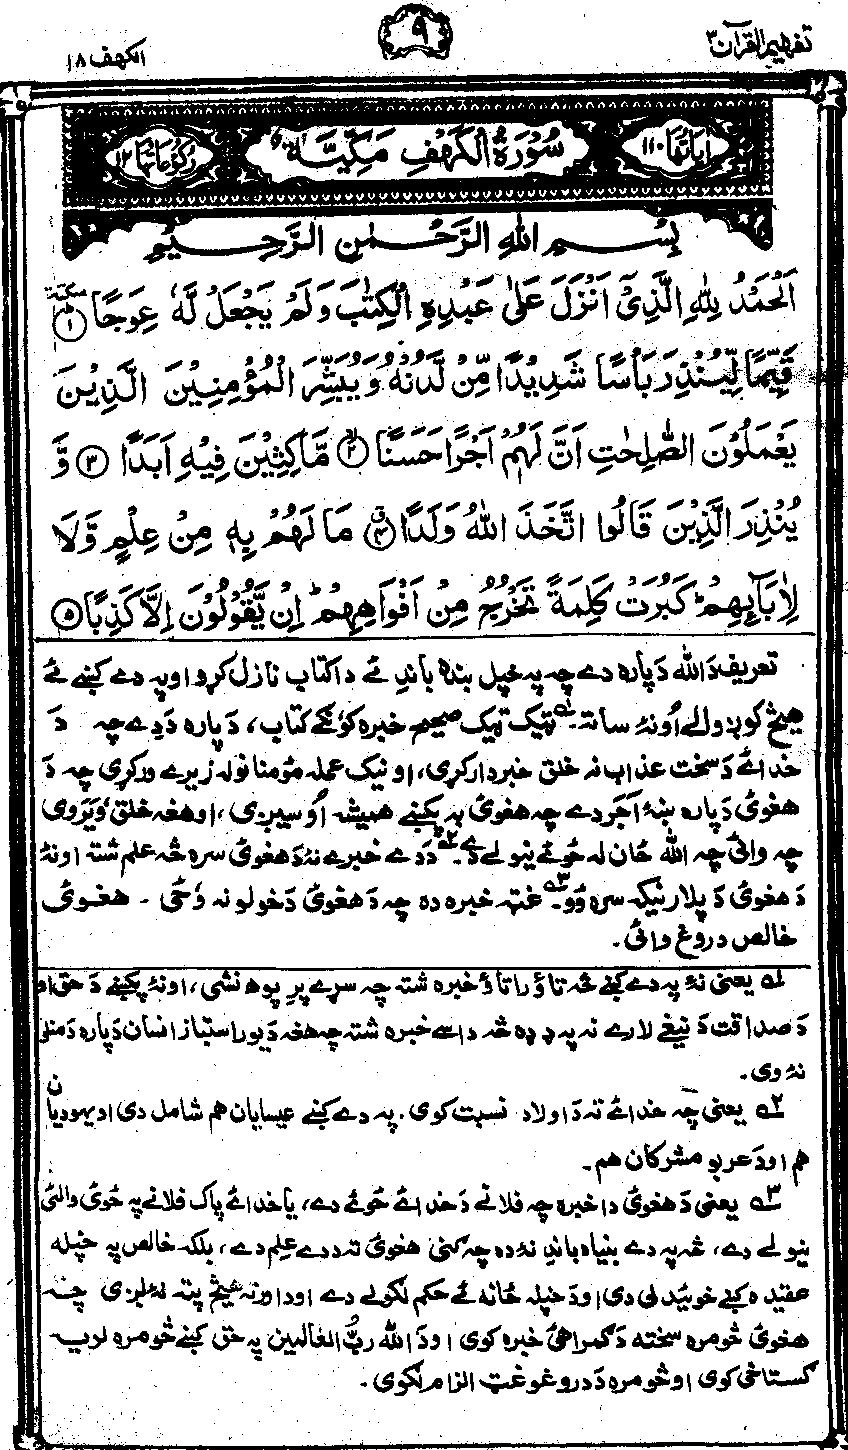 تفهیم القرآن ۳
۹
الکهف ۱۸
اٰیَاتُهَا ۱۱۰
سُوْرَةُ الْكَهْفِ مَكِّيَّةٌ
رُكُوْعَاتُهَا ۱۲
بِسْمِ اللهِ الرَّحْمٰنِ الرَّحِيْمِ
اَلْحَمْدُ لِلّٰهِ الَّذِيْٓ اَنْزَلَ عَلٰى عَبْدِهِ الْكِتٰبَ وَلَمْ يَجْعَلْ لَّهٗ عِوَجًا ۱
قَيِّمًا لِّيُنْذِرَ بَاْسًا شَدِيْدًا مِّنْ لَّدُنْهُ وَيُبَشِّرَ الْمُؤْمِنِيْنَ الَّذِيْنَ
يَعْمَلُوْنَ الصّٰلِحٰتِ اَنَّ لَهُمْ اَجْرًا حَسَنًا ۲ مَّاكِثِيْنَ فِيْهِ اَبَدًا ۳ وَّ
يُنْذِرَ الَّذِيْنَ قَالُوا اتَّخَذَ اللهُ وَلَدًا ۴ مَا لَهُمْ بِهٖ مِنْ عِلْمٍ وَّلَا
لِاٰبَآئِهِمْ كَبُرَتْ كَلِمَةً تَخْرُجُ مِنْ اَفْوَاهِهِمْ اِنْ يَّقُوْلُوْنَ اِلَّا كَذِبًا ۵
تعریف دَ الله دَ پاره دے چہ په خپل بنده باندِ ئے دا کتاب نازل کړو او په دے کښے ئے
هیڅ کوږ والے اُو نۂ ساتۀ۔ ټیک ټیک صحیح خبره کوُنکے کتاب، دَ پاره دَ دے چہ دَ
خدائے دَ سخت عذاب نہ خلق خبردار کړی، او نیک عمله مؤمنانو له زیرے ورکړی چہ دَ
هغوئ دَ پاره ښهٔ اَجر دے چہ هغوئ به پکښے همیشه اُوسیږی، او هغه خلق وُیَروی
چہ وائی چہ الله ځان له ځوئے نیولے دے۔ دَ دے خبرے نۂ دَ هغوئ سره څه علم شته او نۂ
دَ هغوئ دَ پلار نیکه سره وُو۔ غټه خبره ده چہ دَ هغوئ دَ خولو نه وُځی ۔ هغوئ
خالص دروغ وائی۔
۱ یعنی نۂ په دے کښے څه تاؤ راتاؤ خبره شته چہ سړے پرِ پوه نشی، او نۂ پکښے دَ حق او
دَ صداقت دَ نیغے لارے نه په ډډه څه داسے خبره شته چہ هغه دَ یو راستباز انسان دَ پاره دَ منلو
نۂ وی۔
۲ یعنی چہ خدائے ته دَ اولاد نسبت کوی. په دے کښے عیسایان هم شامل دی او یهودیان
هم او دَ عربو مشرکان هم۔
۳ یعنی دَ هغوئ دا خبره چہ فلانے دَ خدائے ځوئے دے، یا خدائے پاک فلانے په ځوئ والئ
نیولے دے، څه په دے بنیاد باندِ نۂ ده چہ هغوئ ته ددے علم دے، بلکہ خالص په خپله
عقیده کښے خوئیدلی دی او دَ خپله ځانه ئے حکم لګولے دے او دا ورته هیڅ پته نۂ لږی چہ
هغوئ څومره سخته دَ ګمراهئ خبره کوی او دَ الله ربُّ العالمین په حق کښے څومره لویه
ګستاخی کوی او څومره دَ دروغو غټ الزام لګوی۔